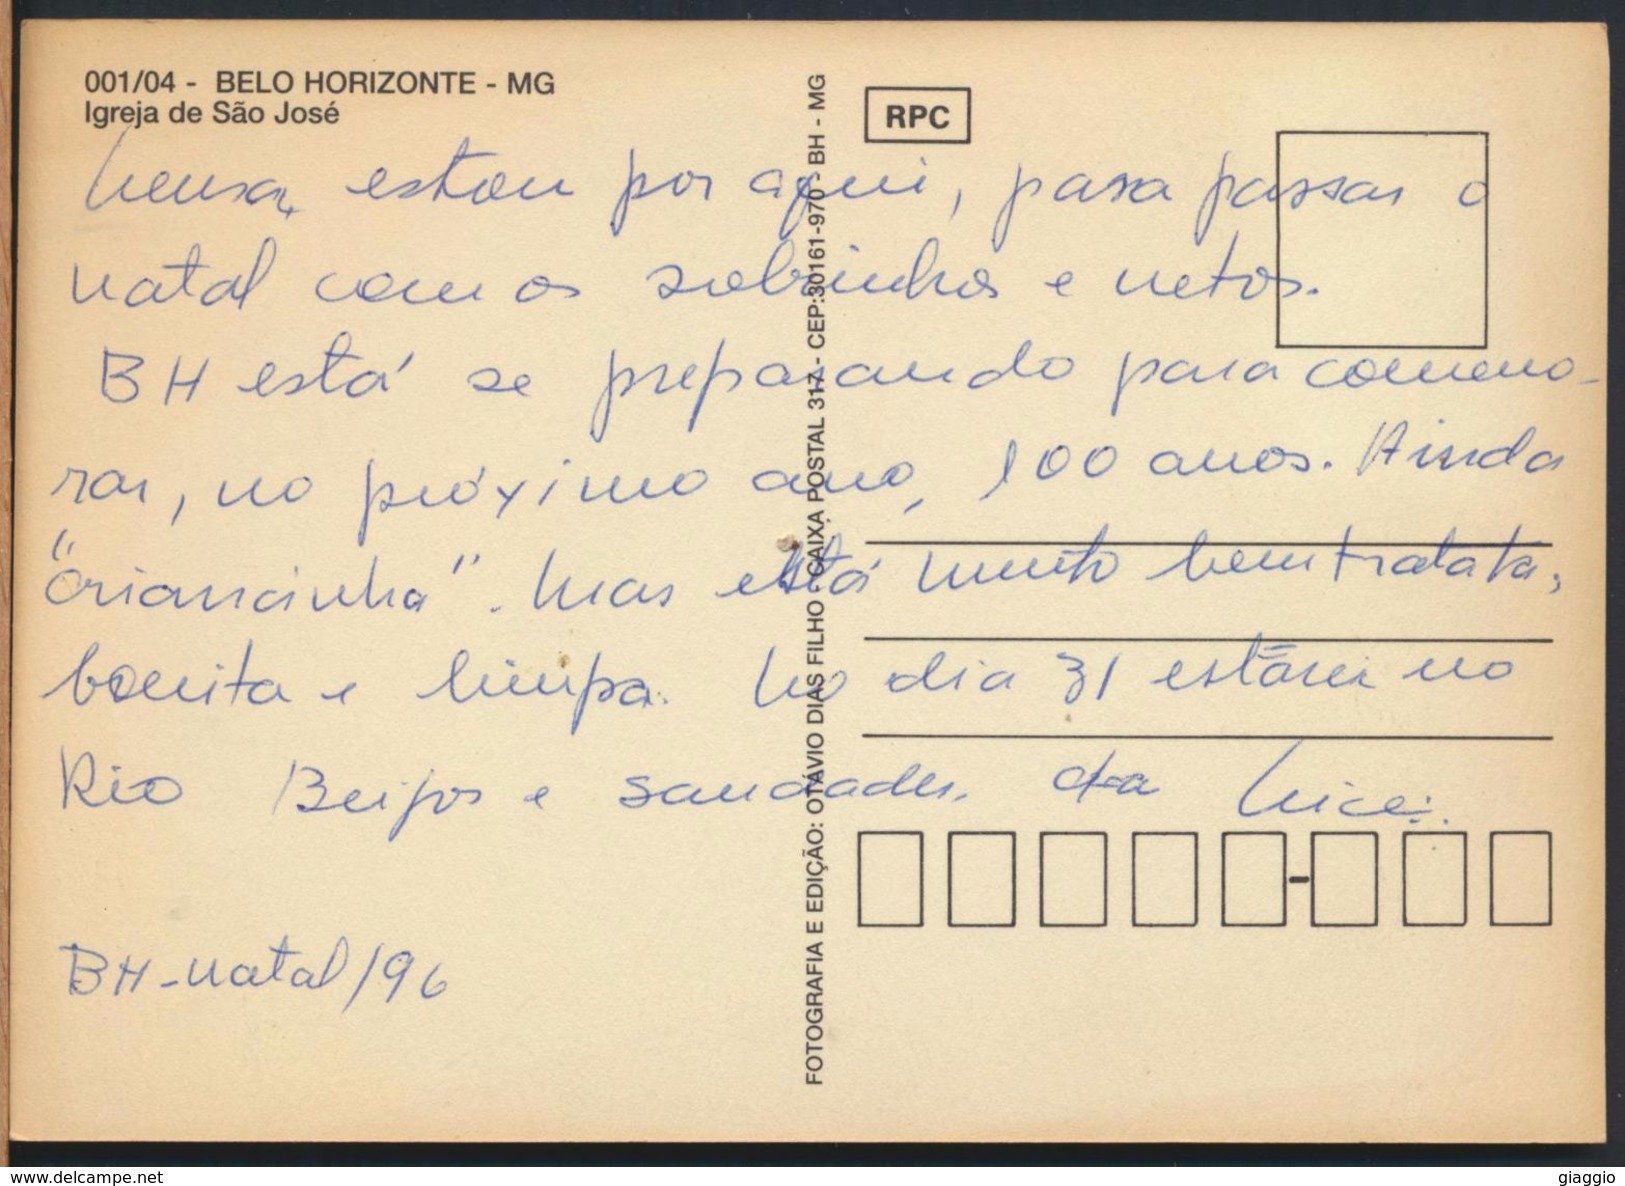 001/04 - BELO HORIZONTE - MG
Igreja de São José
RPC
estou por aqui, para passar o
natal com os sobrinhos e netos.
BH está se preparando para comemo-
rar, no próximo ano, 100 anos. Ainda
"criancinha". Mas está muito bem tratata,
bonita e limpa. No dia 31 estarei no
Rio Beijos e saudades. da Nice
BH-natal/96
FOTOGRAFIA E EDIÇÃO: OTÁVIO DIAS FILHO - CAIXA POSTAL 317 - CEP:30161-970 - BH - MG
www.delcampe.net
giaggio